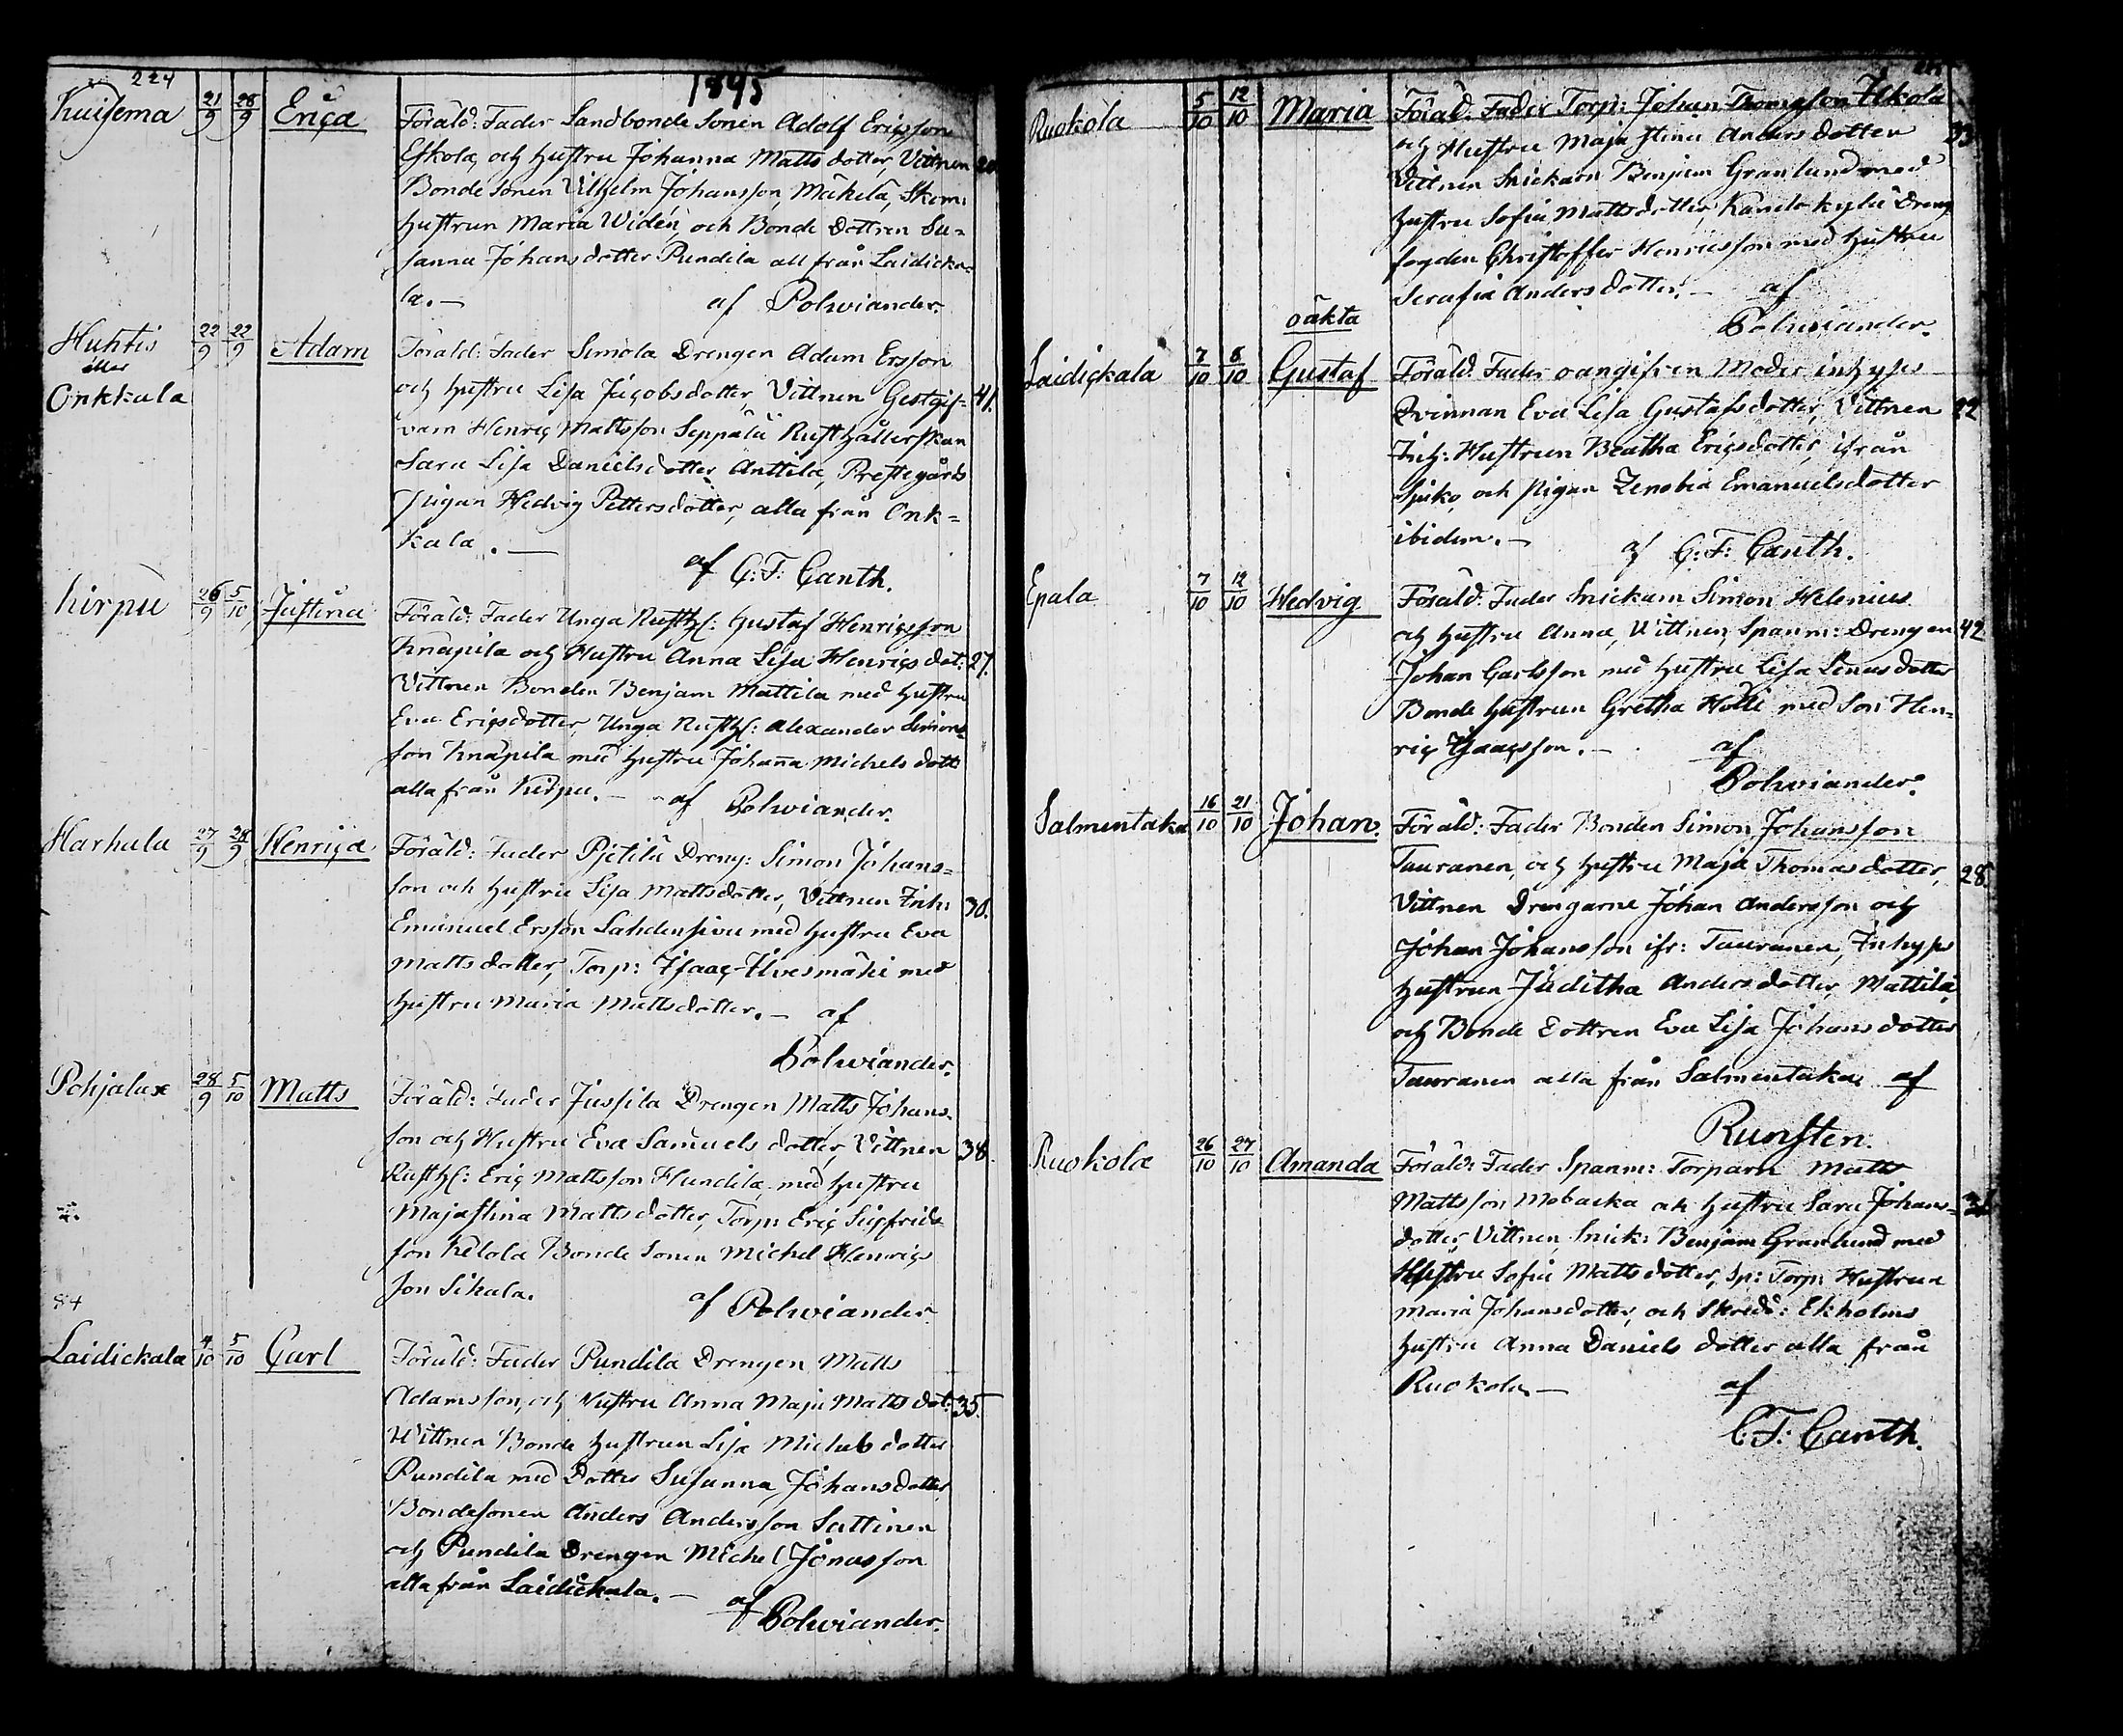 224
1845
Huisema 21/9 28/9 Erica Föräld: Fader Landbonde Sonen Adolf Ericsson
Eskola, och hustru Johanna Matts dotter, Vittnen
Bonde Sonen Vilhelm Johansson, Mäkelä, Skom:
hustrun Maria Widén, och Bonde Dottren Su=
sanna Johans dotter Pundila all från Laidicka=
la. — af Polwiander.
Huhtis 22/9 22/9 Adam Föräld: Fader Simola Drengen Adam Ersson
eller
Onkkala och hustru Lisa Jacobsdotter, Vittnen Gestgif= 41.
varn Henric Mattsson Seppälä Rusthållerskan
Sara Lisa Danielsdotter Anttila, Prestegårds
Pigan Hedvig Pettersdotter, alla från Onk=
kala. — af C: F: Canth.
Kirpu 26/9 5/10 Justina Föräld: Fader Unga Rusth: Gustaf Henricsson
Knapila och Hustru Anna Lisa Henrics dot: 27.
Vittnen Bonden Benjam Mattila med hustru
Eva Ericsdotter, Unga Rusth: Alexander Simons
son Knapila med hustru Johanna Michels dott
alla från Kirpu. — af Polwiander.
Harhala 27/9 28/9 Henrica Föräld: Fader Pjetilä Dreng: Simon Johans=
son och hustru Lisa Mattsdotter, Vittnen Inh: 30.
Emanuel Ersson Lahdensivu med hustru Eva
Matts dotter, Torp: Isaac Ilvesmäki med
hustru Maria Mattsdotter. — af
Polwiander.
Pohjalax 28/9 5/10 Matts Föräld: Fader Jussila Drengen Matts Johans=
son och Hustru Eva Samuels dotter, Vittnen 38.
Rusth: Eric Mattsson Hundila, med hustru
Majastina Matts dotter, Torp: Eric Sigfrids
son Kelola Bonde Sonen Michel Henrics
son Sihala. af Polwiander
84
Laidickala 4/10 5/10 Carl Föräld: Fader Pundila Drengen Matts
Adamsson, och Hustru Anna Maja Matts dot: 35.
Wittnen Bonde hustrun Lisa Michels dotter
Pundila med Dotter Susanna Johansdotter
Bondesonen Anders Andersson Sattinen
och Pundila Drengen Michel Jonasson
alla från Laidickala. — af Polwiander.
Ruokola 5/10 12/10 Maria Föräld: Fader Torp: Johan Thomasson Ukola
och Hustru Majastina Anders dotter 33
Vittnen Snickarn Benjam Granlund med
hustru Sofia Mattsdotter, Kandokylä Dreng
fogden Christoffer Henricsson med hustru
Serafia Anders dotter. — af
Polwiander.
oäkta
Laidickala 7/10 8/10 Gustaf Föräld. Fader oangifven Moder inhyses
Qvinnan Eva Lisa Gustafsdotter, Vittnen 22
Inh: Hustrun Beatha Ericsdotter, ifrån
och Pigan Zenobia Emanuelsdotter
ibidem. — af C: F: Canth.
Epala 7/10 12/10 Hedvig Föräld: Fader Snickarn Simon Helenius
och hustru Anna, Wittnen Spanm: Drengen 42
Johan Carlsson med hustru Lisa Linus dotter
Bonde hustrun Gretha Holli med Son Hen=
ric Isaacsson. — af
Polwiander.
Salmentaka 16/10 21/10 Johan. Föräld: Fader Bonden Simon Johansson
Tauranen, och hustru Maja Thomas dotter, 28.
Vittnen Drengarne Johan Andersson och
Johan Johansson ifr: Tauranen, Inhyses
hustrun Juditha Anders dotter, Mattila,
och Bonde Dottren Eva Lisa Johans dotter
Tauranen alla från Salmentaka af
Runsten.
Ruokola 26/10 27/10 Amanda Föräld: Fader Spanm: Torparn Matts
Mattsson Mobacka och hustru Sara Johans=
dotter Vittnen, Snick: Benjam Granlund med
Hustru Sofia Matts dotter, Sp: Torp: Hustrun
Maria Johansdotter, och Skredd: Ekholms
hustru Anna Daniels dotter alla från
Ruokola — af
C. F: Canth.